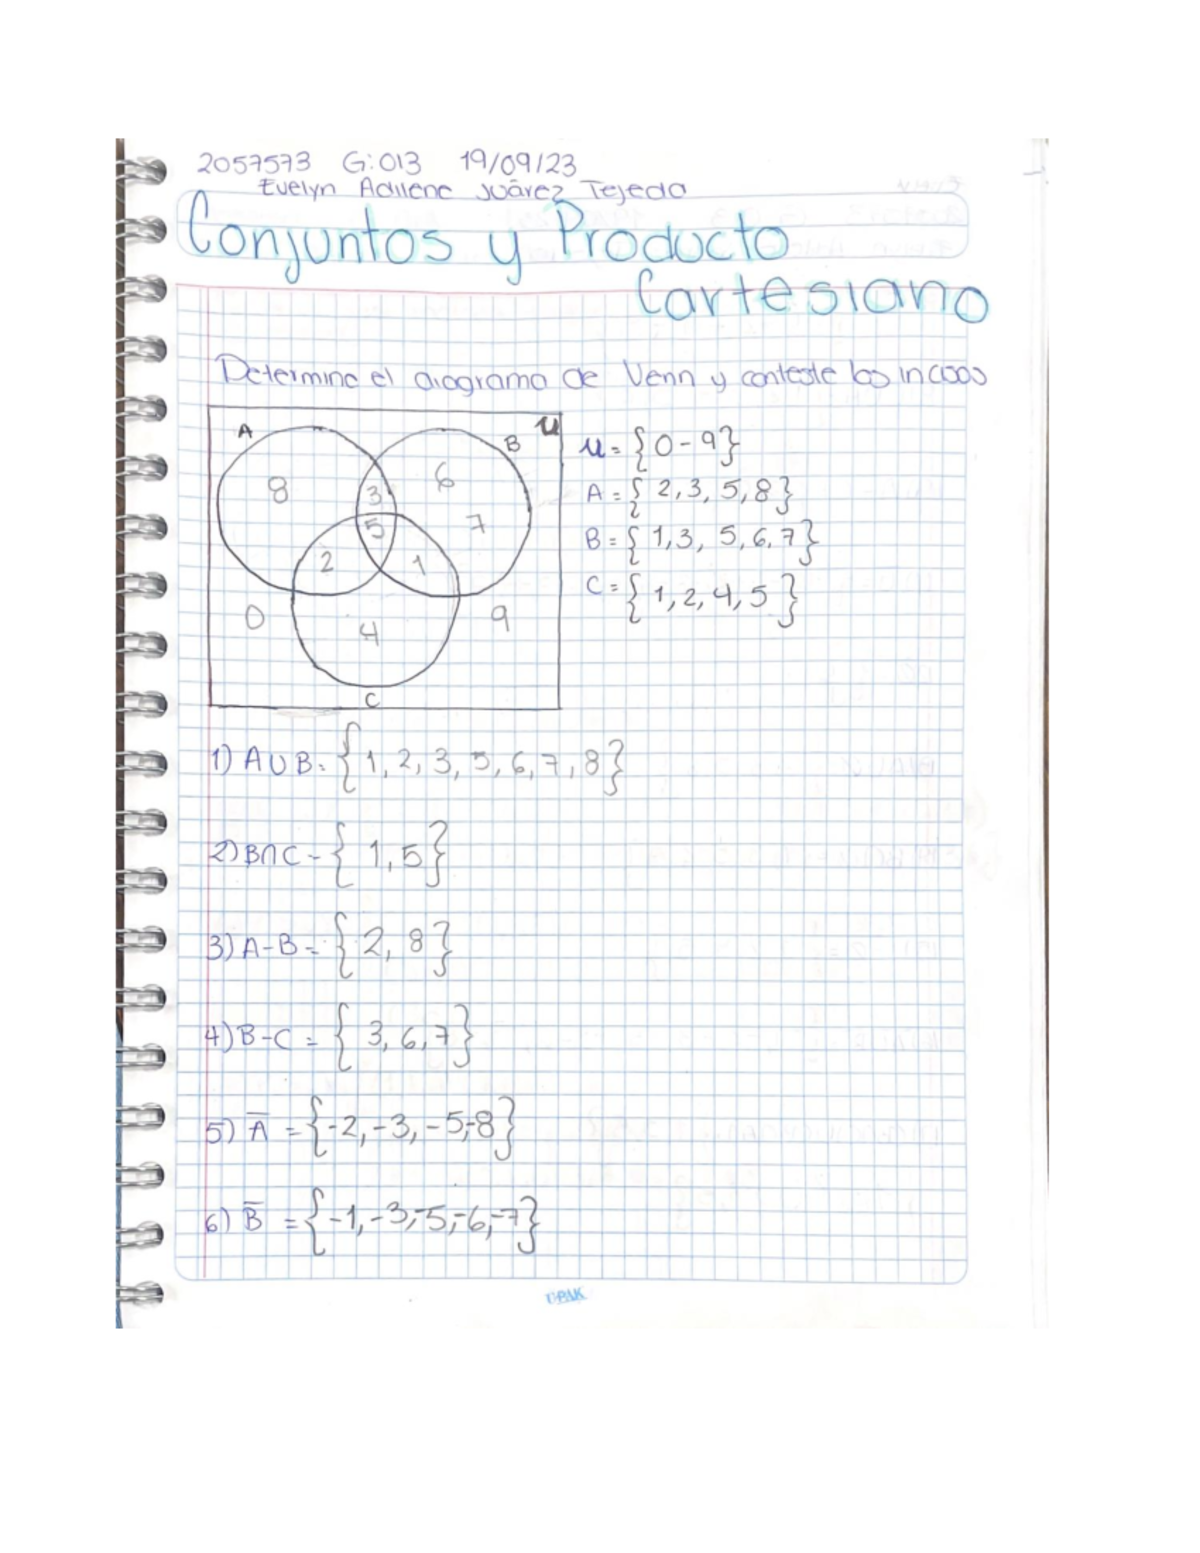 2057573 G:013 19/09/23
Evelyn Adilene Juárez Tejeda
Conjuntos y Producto
Cartesiano
Determine el diagrama de Venn y conteste los incisos
A
B
U
8
3
6
5
7
2
1
0
4
9
C
U = {0-9}
A = {2,3,5,8}
B = {1,3, 5,6,7}
C = {1,2,4,5}
1) A∪B = {1, 2, 3, 5, 6, 7, 8}
2) B∩C = {1,5}
3) A-B = {2, 8}
4) B-C = {3, 6, 7}
5) A̅ = {-2,-3,-5,-8}
6) B̅ = {-1,-3,-5,-6,-7}